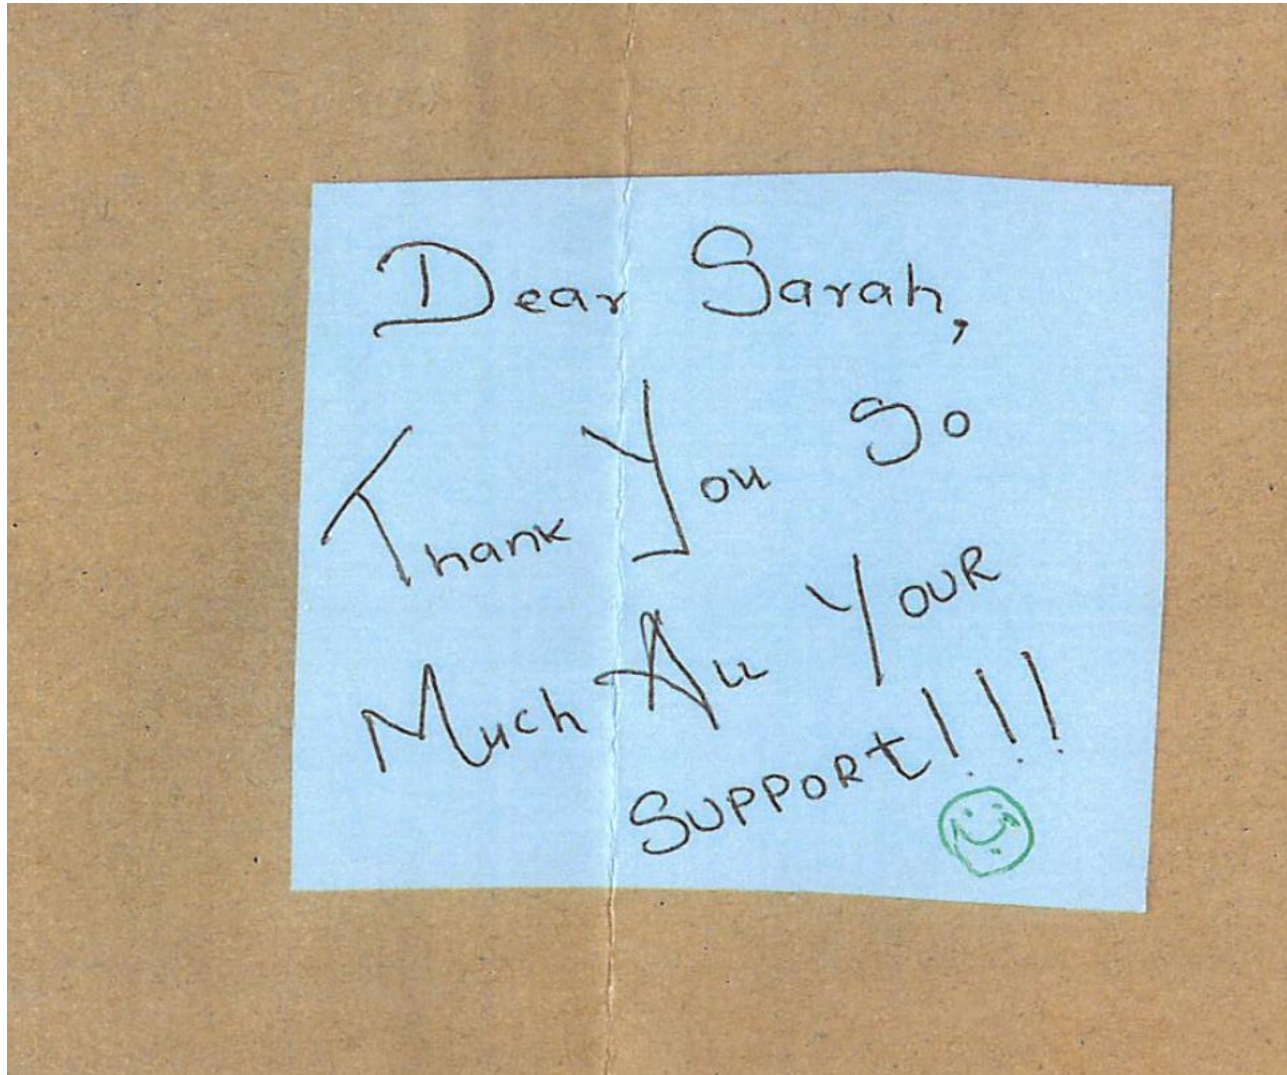 Dear Sarah,
Thank You So
Much All Your
Support!!!